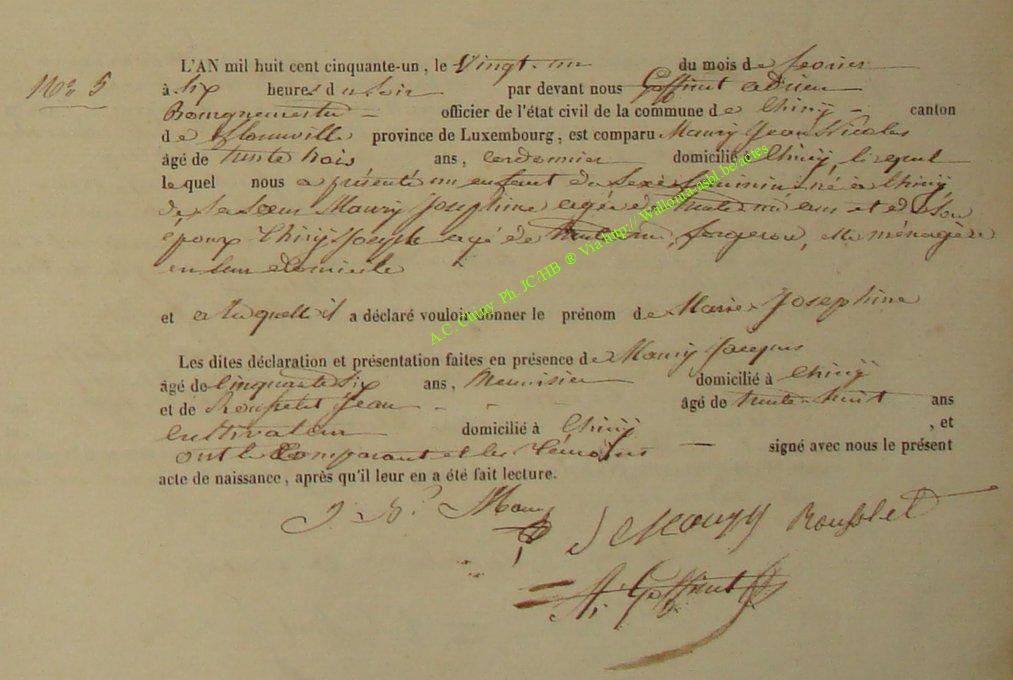 No 5
L'AN mil huit cent cinquante-un, le Vingt-un du mois de fevrier
à six heures du soir par devant nous Goffinet adrien
Bourguemestre officier de l'état civil de la commune de Chiny canton
de province de Luxembourg, est comparu Maury Jean Nicolas
âgé de trente trois ans, cordonnier domicilié à Chiny,
lequel nous a présenté un enfant du sexe feminin né à Chiny
de sa soeur Maury Josephine agée de trente un ans et de son
epoux Chiny Joseph agé de trente un, forgeron, elle ménagère
en leur domicile
et a laquelle il a déclaré vouloir donner le prénom de Marie Josephine
Les dites déclaration et présentation faites en présence de Maury Jacques
âgé de Cinquante six ans, Menuisier domicilié à Chiny
et de Jean âgé de trente-huit ans
Cultivateur domicilié à Chiny, et
ont le Comparant et les témoins signé avec nous le présent
acte de naissance, après qu'il leur en a été fait lecture.
J. N. Maury
J Maury
A. Goffinet
A.C. Chiny Ph. JC/HB ® Via http:// Wallonia-asbl.be/actes